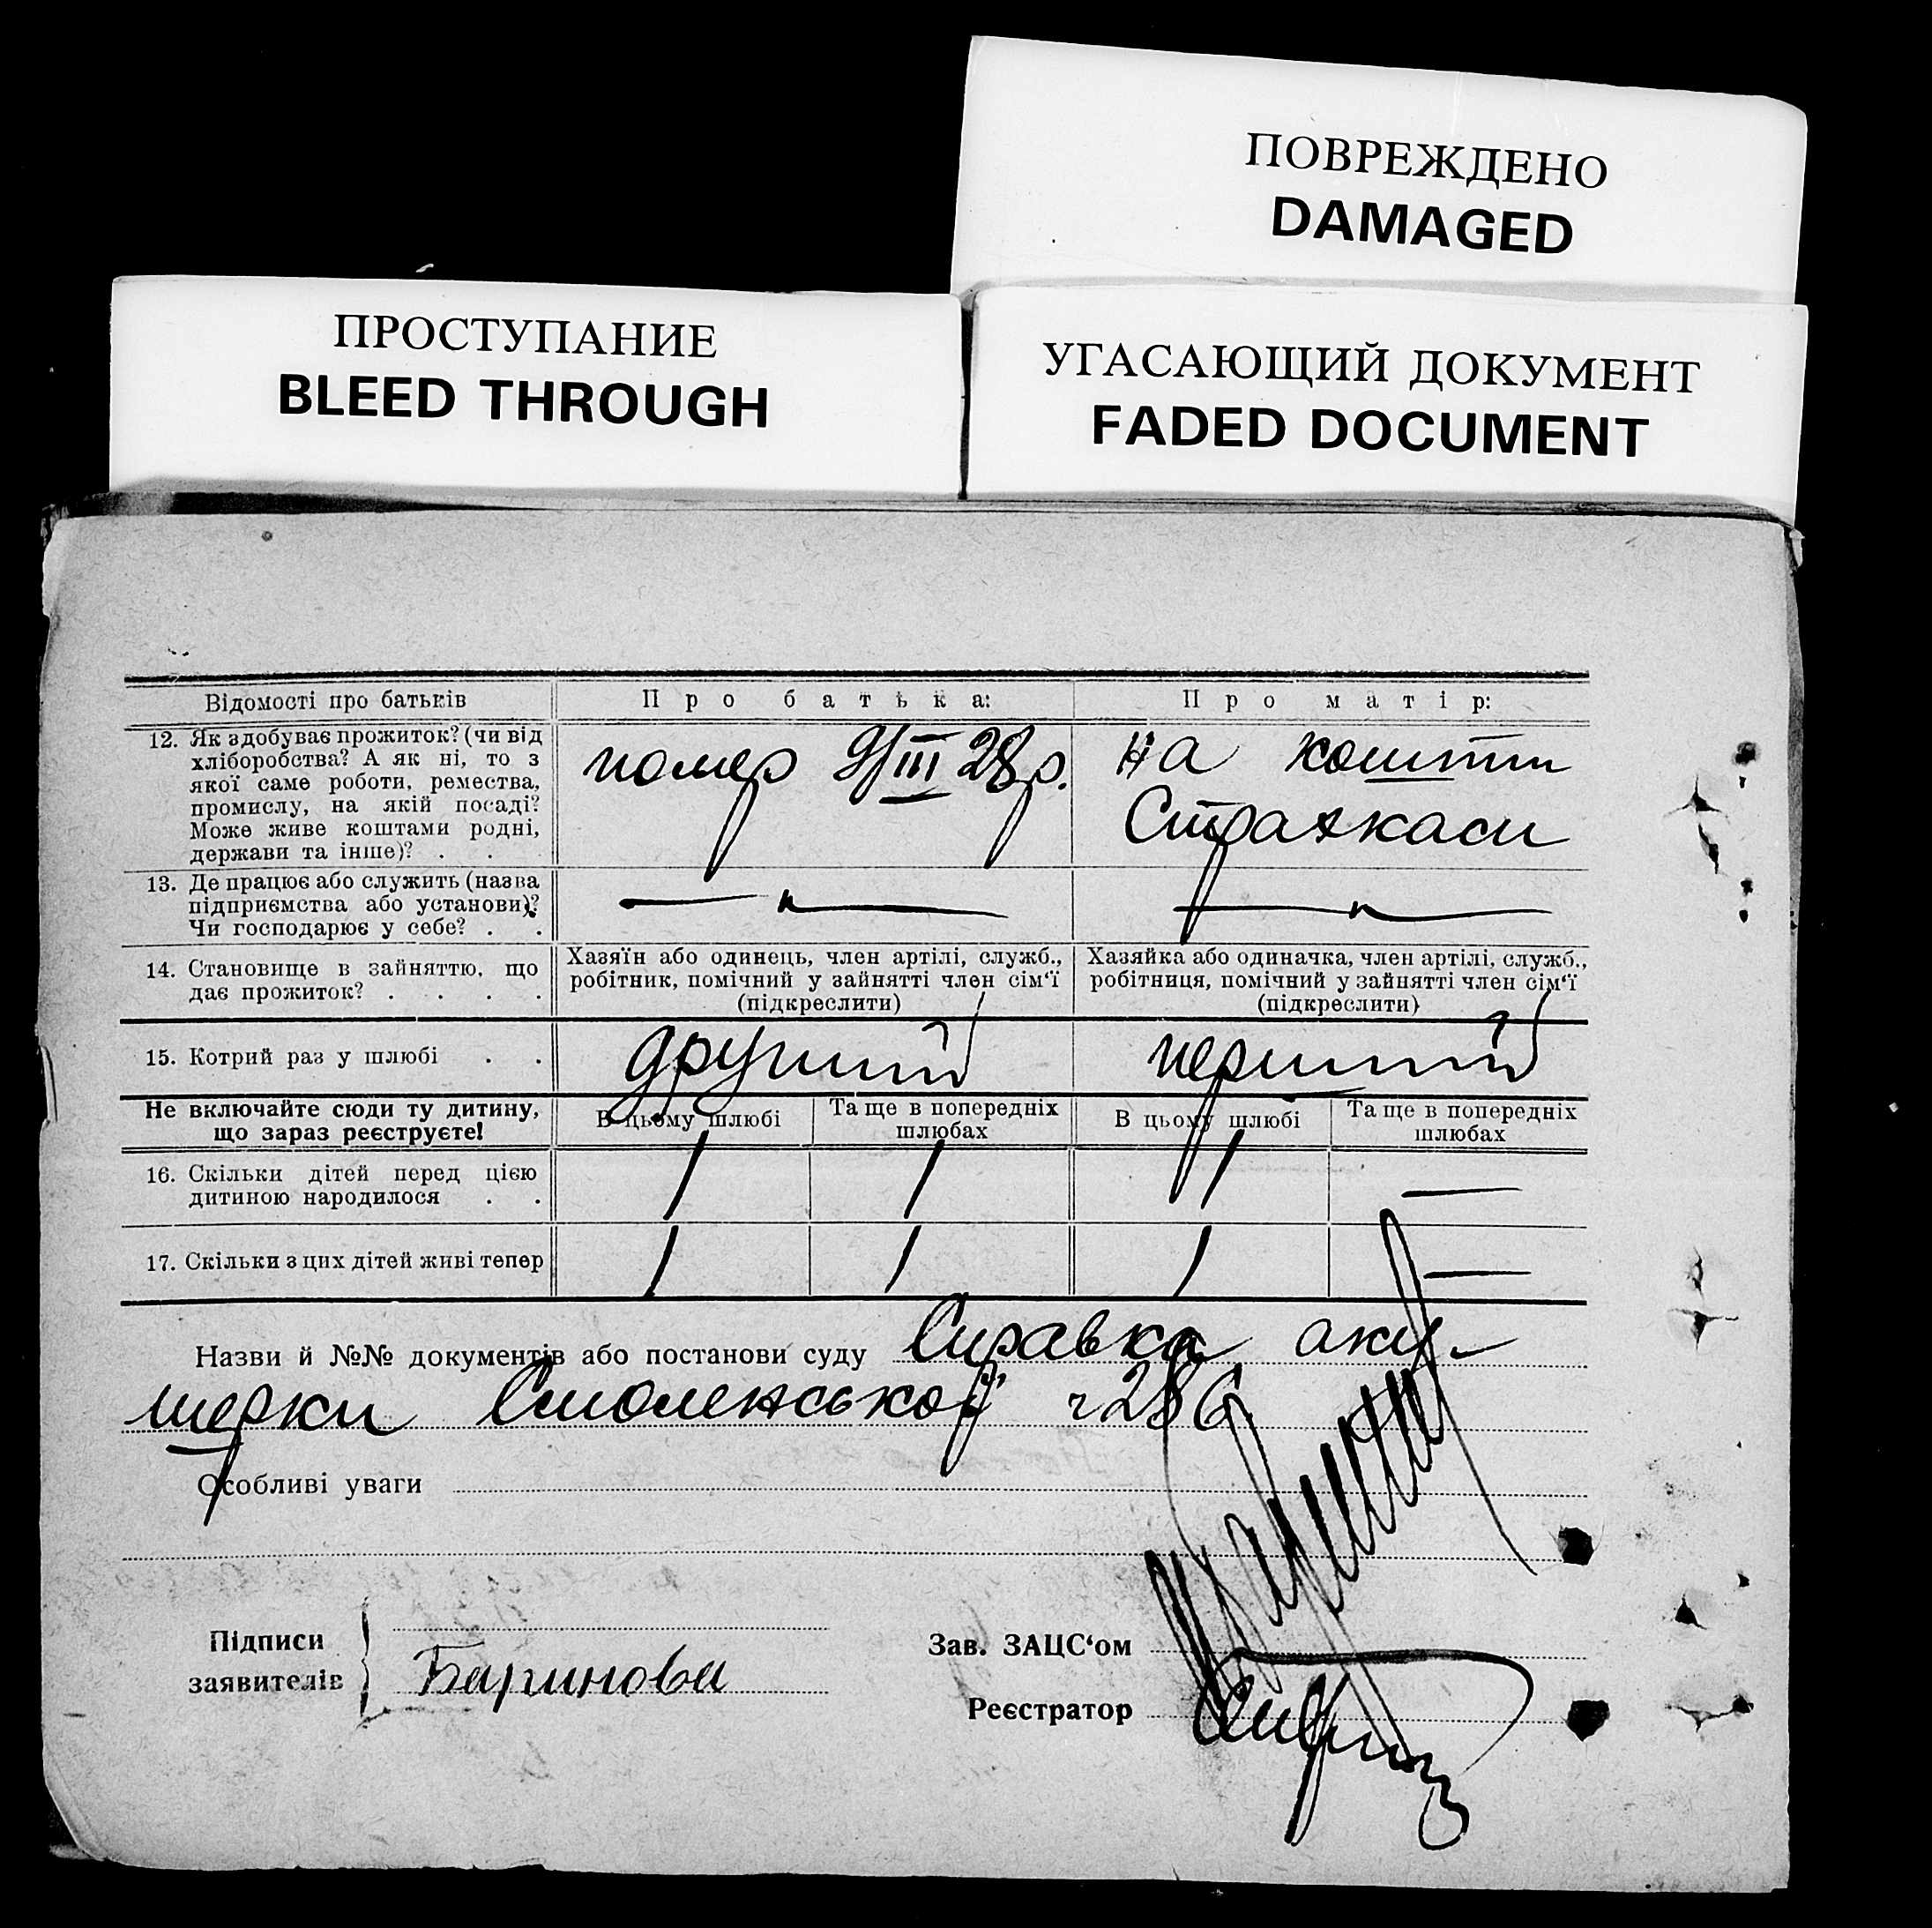 ПОВРЕЖДЕНО
DAMAGED
ПРОСТУПАНИЕ
BLEED THROUGH
УГАСАЮЩИЙ ДОКУМЕНТ
FADED DOCUMENT
Відомості про батьків
Про батька:
Про матір:
12. Як здобуває прожиток? (чи від
хліборобства? А як ні, то з
якої саме роботи, ремества,
промислу, на якій посаді?
Може живе коштами родні,
держави та інше)? . .
помер 9/III 28 р.
на кошти
Страхкаси
13. Де працює або служить (назва
підприємства або установи)?
Чи господарює у себе? . .
— „ —
— „ —
14. Становище в зайняттю, що
дає прожиток? . . . .
Хазяїн або одинець, член артілі, служб.,
робітник, помічний у зайнятті член сім‘ї
(підкреслити)
Хазяйка або одиначка, член артілі, служб.,
робітниця, помічний у зайнятті член сім‘ї
(підкреслити)
15. Котрий раз у шлюбі . .
другий
перший
Не включайте сюди ту дитину,
що зараз реєструєте!
В цьому шлюбі
Та ще в попередніх
шлюбах
В цьому шлюбі
Та ще в попередніх
шлюбах
16. Скільки дітей перед цією
дитиною народилося . .
1 1 1 —
17. Скільки з цих дітей живі тепер
1 1 1 —
Назви й №№ документів або постанови суду Справка аку-
шерки Смоленської ч 286
Особливі уваги
Підписи
заявителів
Баринова
Зав. ЗАЦС‘ом
Реєстратор